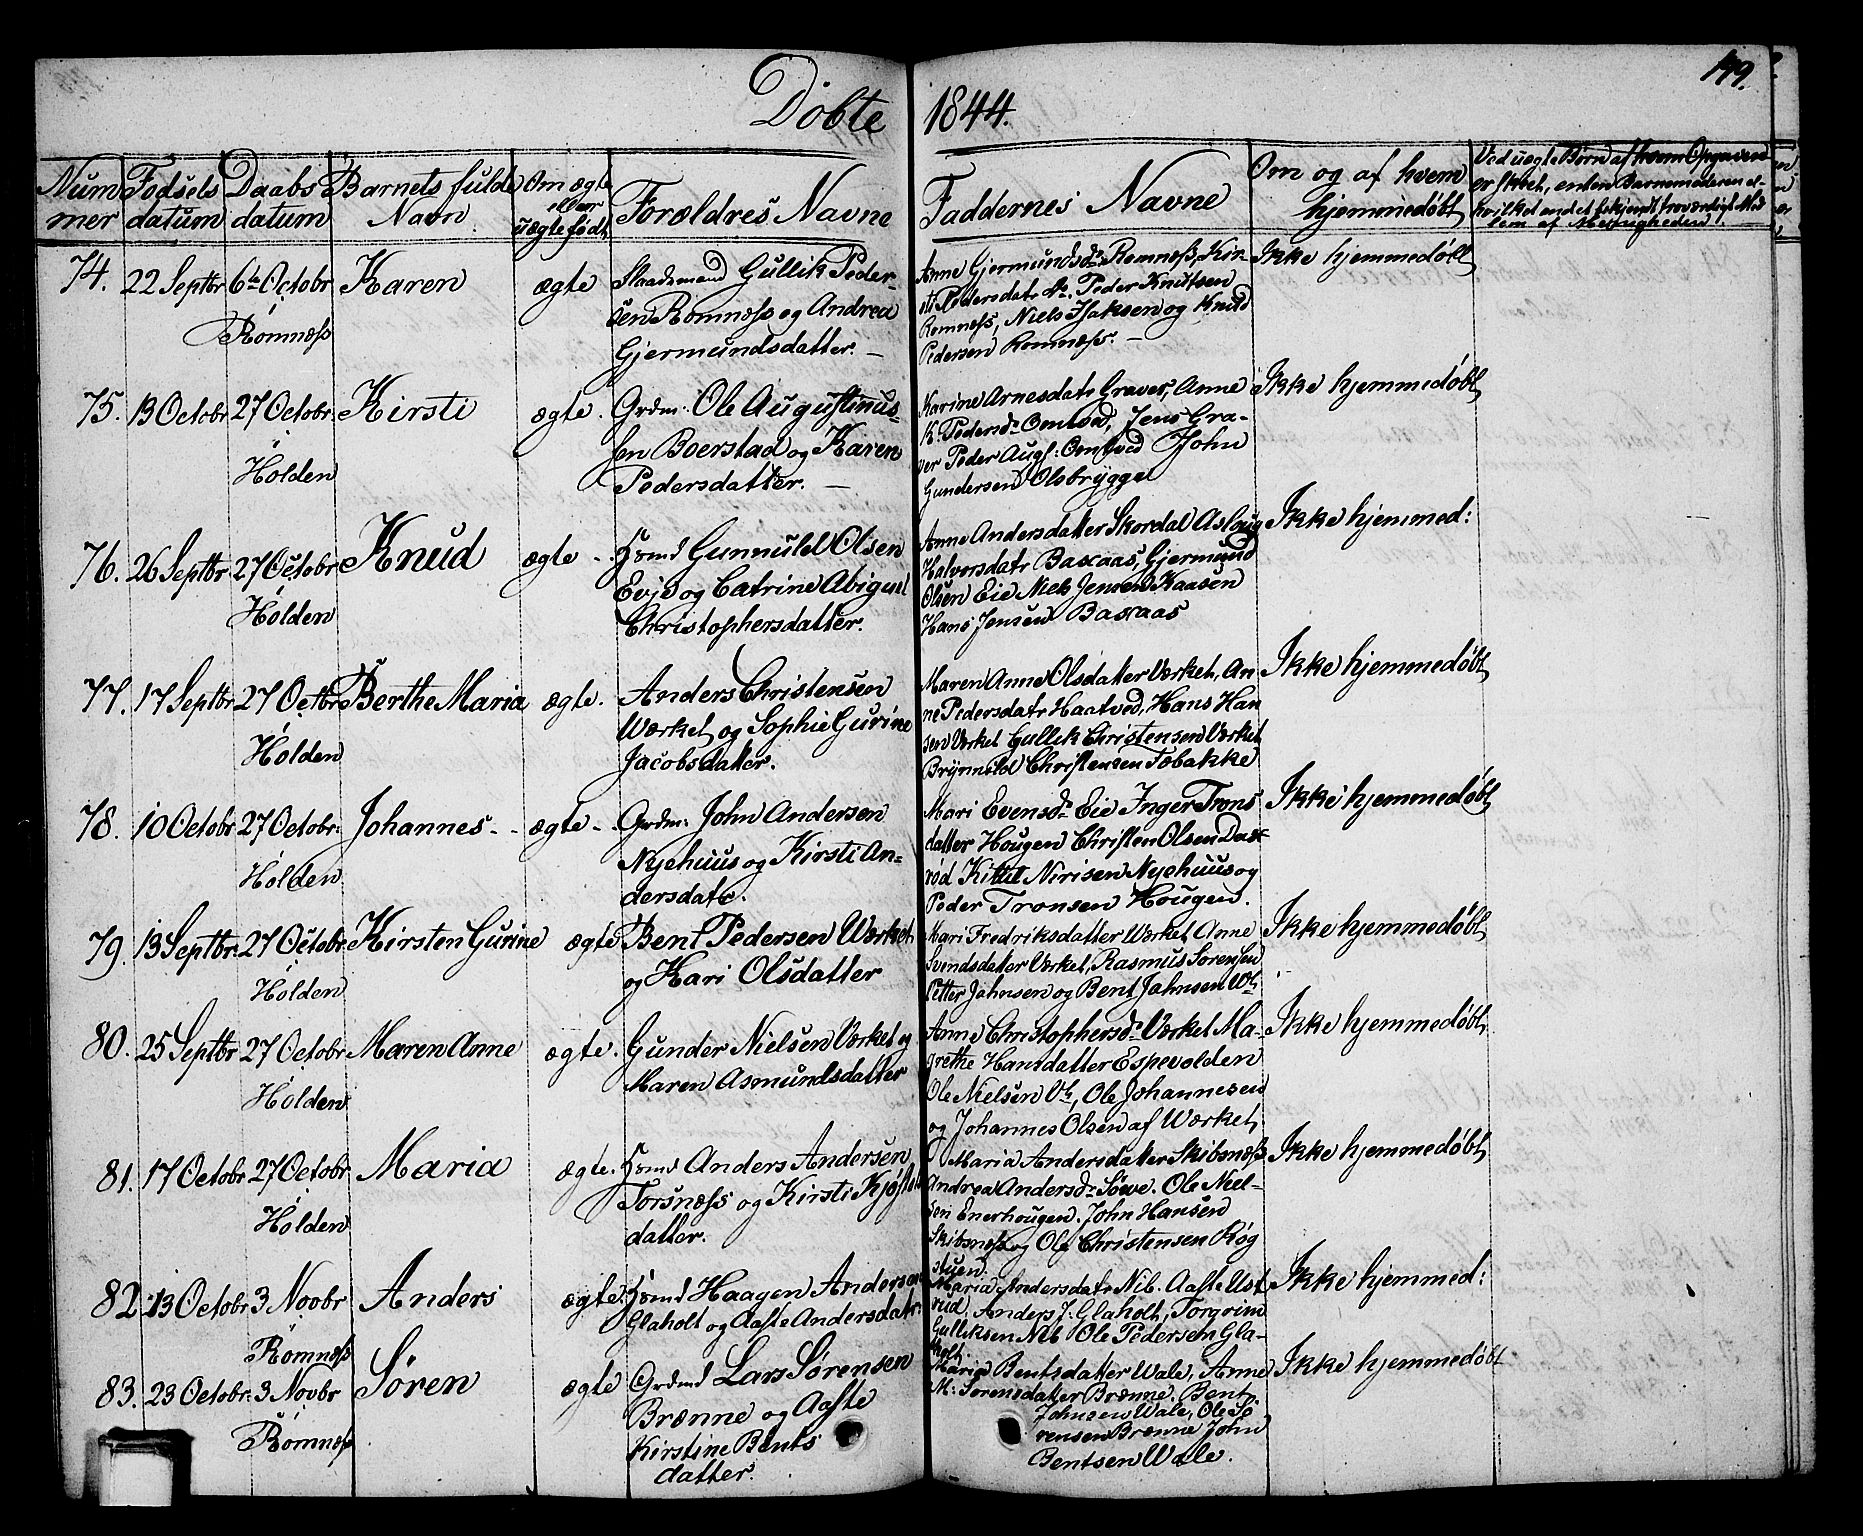 Døbte 1844.
149.
Num
mer
Fødsels
datum
Daabs
datum
Barnets fulde
Navn
Om ægte
eller
uægte født
Forældres Navne
Faddernes Navne
Om og af hvem
hjemmedøbt
Ved uægte Børn af hvem Opgaven
er skeet, enten Barnemoderen el-
74. 22 Septbr 6te Octobr Karen ægte
Rømnæss
Gullik Peder-
sen Romnæss og Andrea
Gjermundsdatter. —
Anne Gjermundsdr Romnæss, Kir-
sti Pedersdatr do. Peder Knutsen
Romnæss, Niels Isaksen og Knud
Pedersen Romnæss. —
Ikke hjemmedøbt
75. 13 Octobr 27 Octobr Kirsti ægte.
Holden
Grdm: Ole Augustinus-
sen Boerstad og Karen
Pedersdatter. —
Karine Arnesdatr Graver, Anne
K. Pedersdr Omtved, Jens Gra-
ver Peder Aug: Omtved John
Gundersen Olsbrygge
Ikke hjemmedøbt
76. 26 Septbr 27 Octobr Knud ægte.
Holden
Hsmd Gunnuld Olsen
Evje og Catrine Abigael
Christophersdatter.
Anne Andersdatter Skordal Asloug
Halvorsdatr Baxaas, Gjermund
Olsen Eie Niels Jensen Kaasen
Hans Jensen Baxaas
Ikke hjemmed:
77. 17 Septbr 27 Octbr Berthe Maria ægte.
Holden
Anders Christensen
Værket og Sophie Gurine
Jacobsdatter.
Maren Anne Olsdatter Værket, An-
ne Pedersdatr Haatved, Hans Han
sen Værket Gullik Christensen Værket
Brynnild Christensen Tobakke
Ikke hjemmedøbt
78. 10 Octobr 27 Octobr: Johannes - - ægte - .
Holden
Grdm: John Andersen
Nyehuus og Kirsti An-
dersdatr.
Mari Evensdr Eie Inger Trons
datter Hougen Christen Olsen Dax
rød Kittil Nirisen Nyehuus og
Peder Tronsen Hougen.
Ikke hjemmedøbt
79. 13 Septbr: 27 Octobr: Kirsten Gurine ægte
Holden
Bent Pedersen Værket
og Kari Olsdatter
Mari Fredriksdatter Værket, Anne
Svendsdatter Værket, Rasmus Sørensen
Petter Jahnsen og Bent Jahnsen Vk
Ikke hjemmedøbt
80. 25 Septbr 27 Octobr Maren Anne ægte.
Holden
Gunder Nielsen Værket og
Maren Asmundsdatter
Anne Christophersdr Værket Ma-
grethe Hansdatter Espevolden
Ole Nielsen Vk, Ole Johannesen
og Johannes Olsen af Værket,
Ikke hjemmedøbt,
81. 17 Octobr 27 Octobr Maria ægte.
Holden
Hsmd Anders Andersen
Torsnæss og Kirsti Kjøstels
datter.
Maria Andersdatter Skibsnæss
Andrea Andersdr Søve. Ole Niel-
sen Enerhougen. John Hansen
Skibsnæss og Ole Christensen Røg
stuen.
Ikke hjemmedøbt,
82. 13 Octobr 3 Novbr Anders ægte.
Rømnæss
Hsmd Haagen Andersen
Glaholt og Aaste Andersdatr.
Maria Andersdatr Nib. Aaste Ust
rud, Anders J: Glaholt, Torgrim
Gulliksen Nib Ole Pedersen Gla-
holt.
Ikke hjemmed:
83. 23 Octobr: 3 Novbr Søren ægte
Rømnæss
Grdmd Lars Sørensen
Brænne og Aaste
Kirstine Bents
datter.
Maria Bentsdatter Wale, Anne
M: Sørensdatter Brænne. Bent
Johnsen Wale, Ole Sø
rensen Brænne John
Bentsen Wale.
Ikke hjemmedøbt